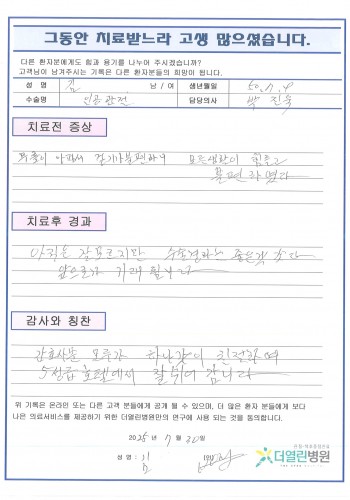 그동안 치료받느라 고생 많으셨습니다.
다른 환자분에게도 힘과 용기를 나누어 주시겠습니까?
고객님이 남겨주시는 기록은 다른 환자분들의 희망이 됩니다.
성 명 김 남 / 여 생년월일
수술명 인공관절 담당의사 박 진욱
치료전 증상
걷기가 불편하니 모든생활이 힘들고
불편하였다
치료후 경과
아직은 수술전보다는 좋은것 같다
앞으로가 기대 됩니다
감사와 칭찬
간호사분 모두가 하나같이 친절하며
5성급 호텔에서 잘쉬어 갑니다
위 기록은 온라인 또는 다른 고객 분들에게 공개 될 수 있으며, 더 많은 환자 분들에게 보다
나은 의료서비스를 제공하기 위한 더열린병원만의 연구에 사용 되는 것을 동의합니다.
2025년 7월 22일
성 명 : 김
더열린병원